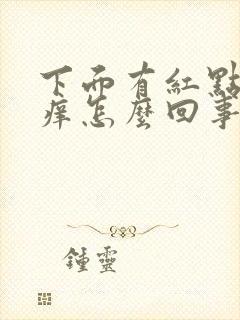 下面有紅點
痒怎麼回事
鍾靈